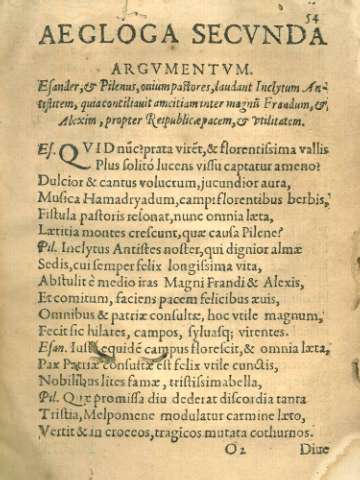 54
AEGLOGA SECVNDA
ARGVMENTVM.
Esander, & Pilenus, ouium pastores, laudant Inclytum An-
tistitem, quia conciliauit amcitiam inter magnũ Frandum, &
Alexim, propter Reipublicæ pacem, & vtilitatem.
Es. QVID nũc prata virẽt, & florentissima vallis
Plus solitò lucens vissu captatur ameno?
Dulcior & cantus voluctum, jucundior aura,
Musica Hamadryadum, campi florentibus herbis,
Fistula pastoris resonat, nunc omnia læta,
Lætitia montes crescunt, quæ causa Pilene?
Pil. Inclytus Antistes noster, qui dignior almæ
Sedis, cui semper felix longissima vita,
Abstulit è medio iras Magni Frandi & Alexis,
Et comitum, faciens pacem felicibus æuis,
Omnibus & patriæ consultæ, hoc vtile magnum,
Fecit sic hilares, campos, syluasq; virentes.
Esan. Iuste equidẽ campus florescit, & omnia læta,
Pax Patriæ consultæ est felix vtile cunctis,
Nobilibus lites famæ, tristissima bella,
Pil. Quæ promissa diu dederat discordia tanta
Tristia, Melpomene modulatur carmine læto,
Vertit & in croceos, tragicos mutata cothurnos.
O2 Diue